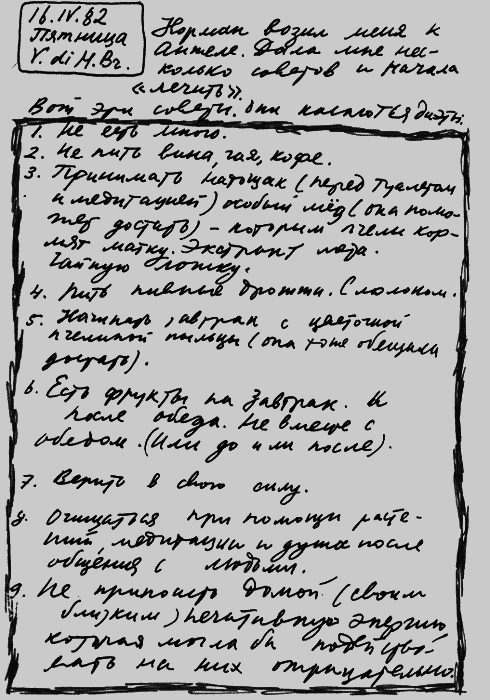 16.IV.82
Пятница
V. di M.Br.
Норман возил меня к
Ангеле. Дала мне нес-
колько советов и начала
«лечить».
Вот эти советы. Они касаются диэты.
1. Не есть много.
2. Не пить вина, чая, кофе.
3. Принимать натощак (перед туалетом
и медитацией) особый мёд (она помо-
жет достать) – которым пчелы кор-
мят матку. Экстракт
Чайную ложку.
4. Пить пивные дрожжи. С молоком.
5. Начинать завтрак с цветочной
пчелиной пыльцы (она тоже обещала
достать).
6. Есть фрукты на завтрак. И
после обеда. Не вместе с
обедом. (Или до или после).
7. Верить в свою силу.
8. Очищаться при помощи расте-
ний медитации и душа после
общения с людьми.
9. Не приносить домой (своим
близким) негативную энергию
которая могла бы подейство-
вать на них отрицательно.